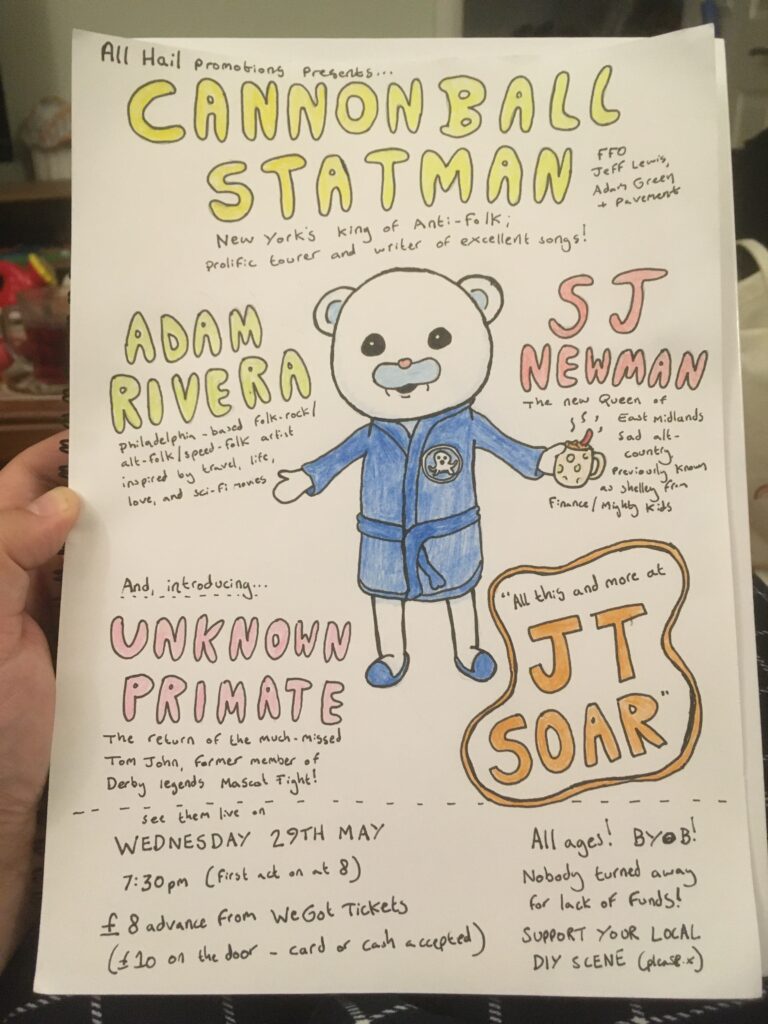 All Hail Promotions Presents...
CANNONBALL
STATMAN
FFO
Jeff Lewis,
Adam Green
+ Pavement
New York's king of Anti-Folk;
prolific tourer and writer of excellent songs!
ADAM
RIVERA
Philadelphia-based folk-rock/
alt-folk/speed-folk artist
inspired by travel, life,
love, and sci-fi movies
SJ
NEWMAN
The new Queen of
East Midlands
Sad alt-
country
Previously known
as Shelley from
Finance/Mighty Kids
And, introducing...
UNKNOWN
PRIMATE
The return of the much-missed
Tom John, former member of
Derby legends Mascot Fight!
"All this and more at
JT
SOAR"
see them live on
WEDNESDAY 29TH MAY
7:30pm (First act on at 8)
£8 advance from WeGot Tickets
(£10 on the door - card or cash accepted)
All ages! BYOB!
Nobody turned away
for lack of funds!
SUPPORT YOUR LOCAL
DIY SCENE (please x)